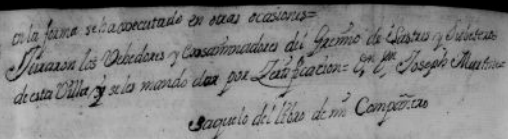 en la forma se ha executado en otras ocasiones=
Juraron los Vehedores y Exsaminadores del Gremio de Sastres y
de esta Villa, y se les mando dar por Zertificacion= Joseph Martin=
Saquelo del libro de mi Compañero